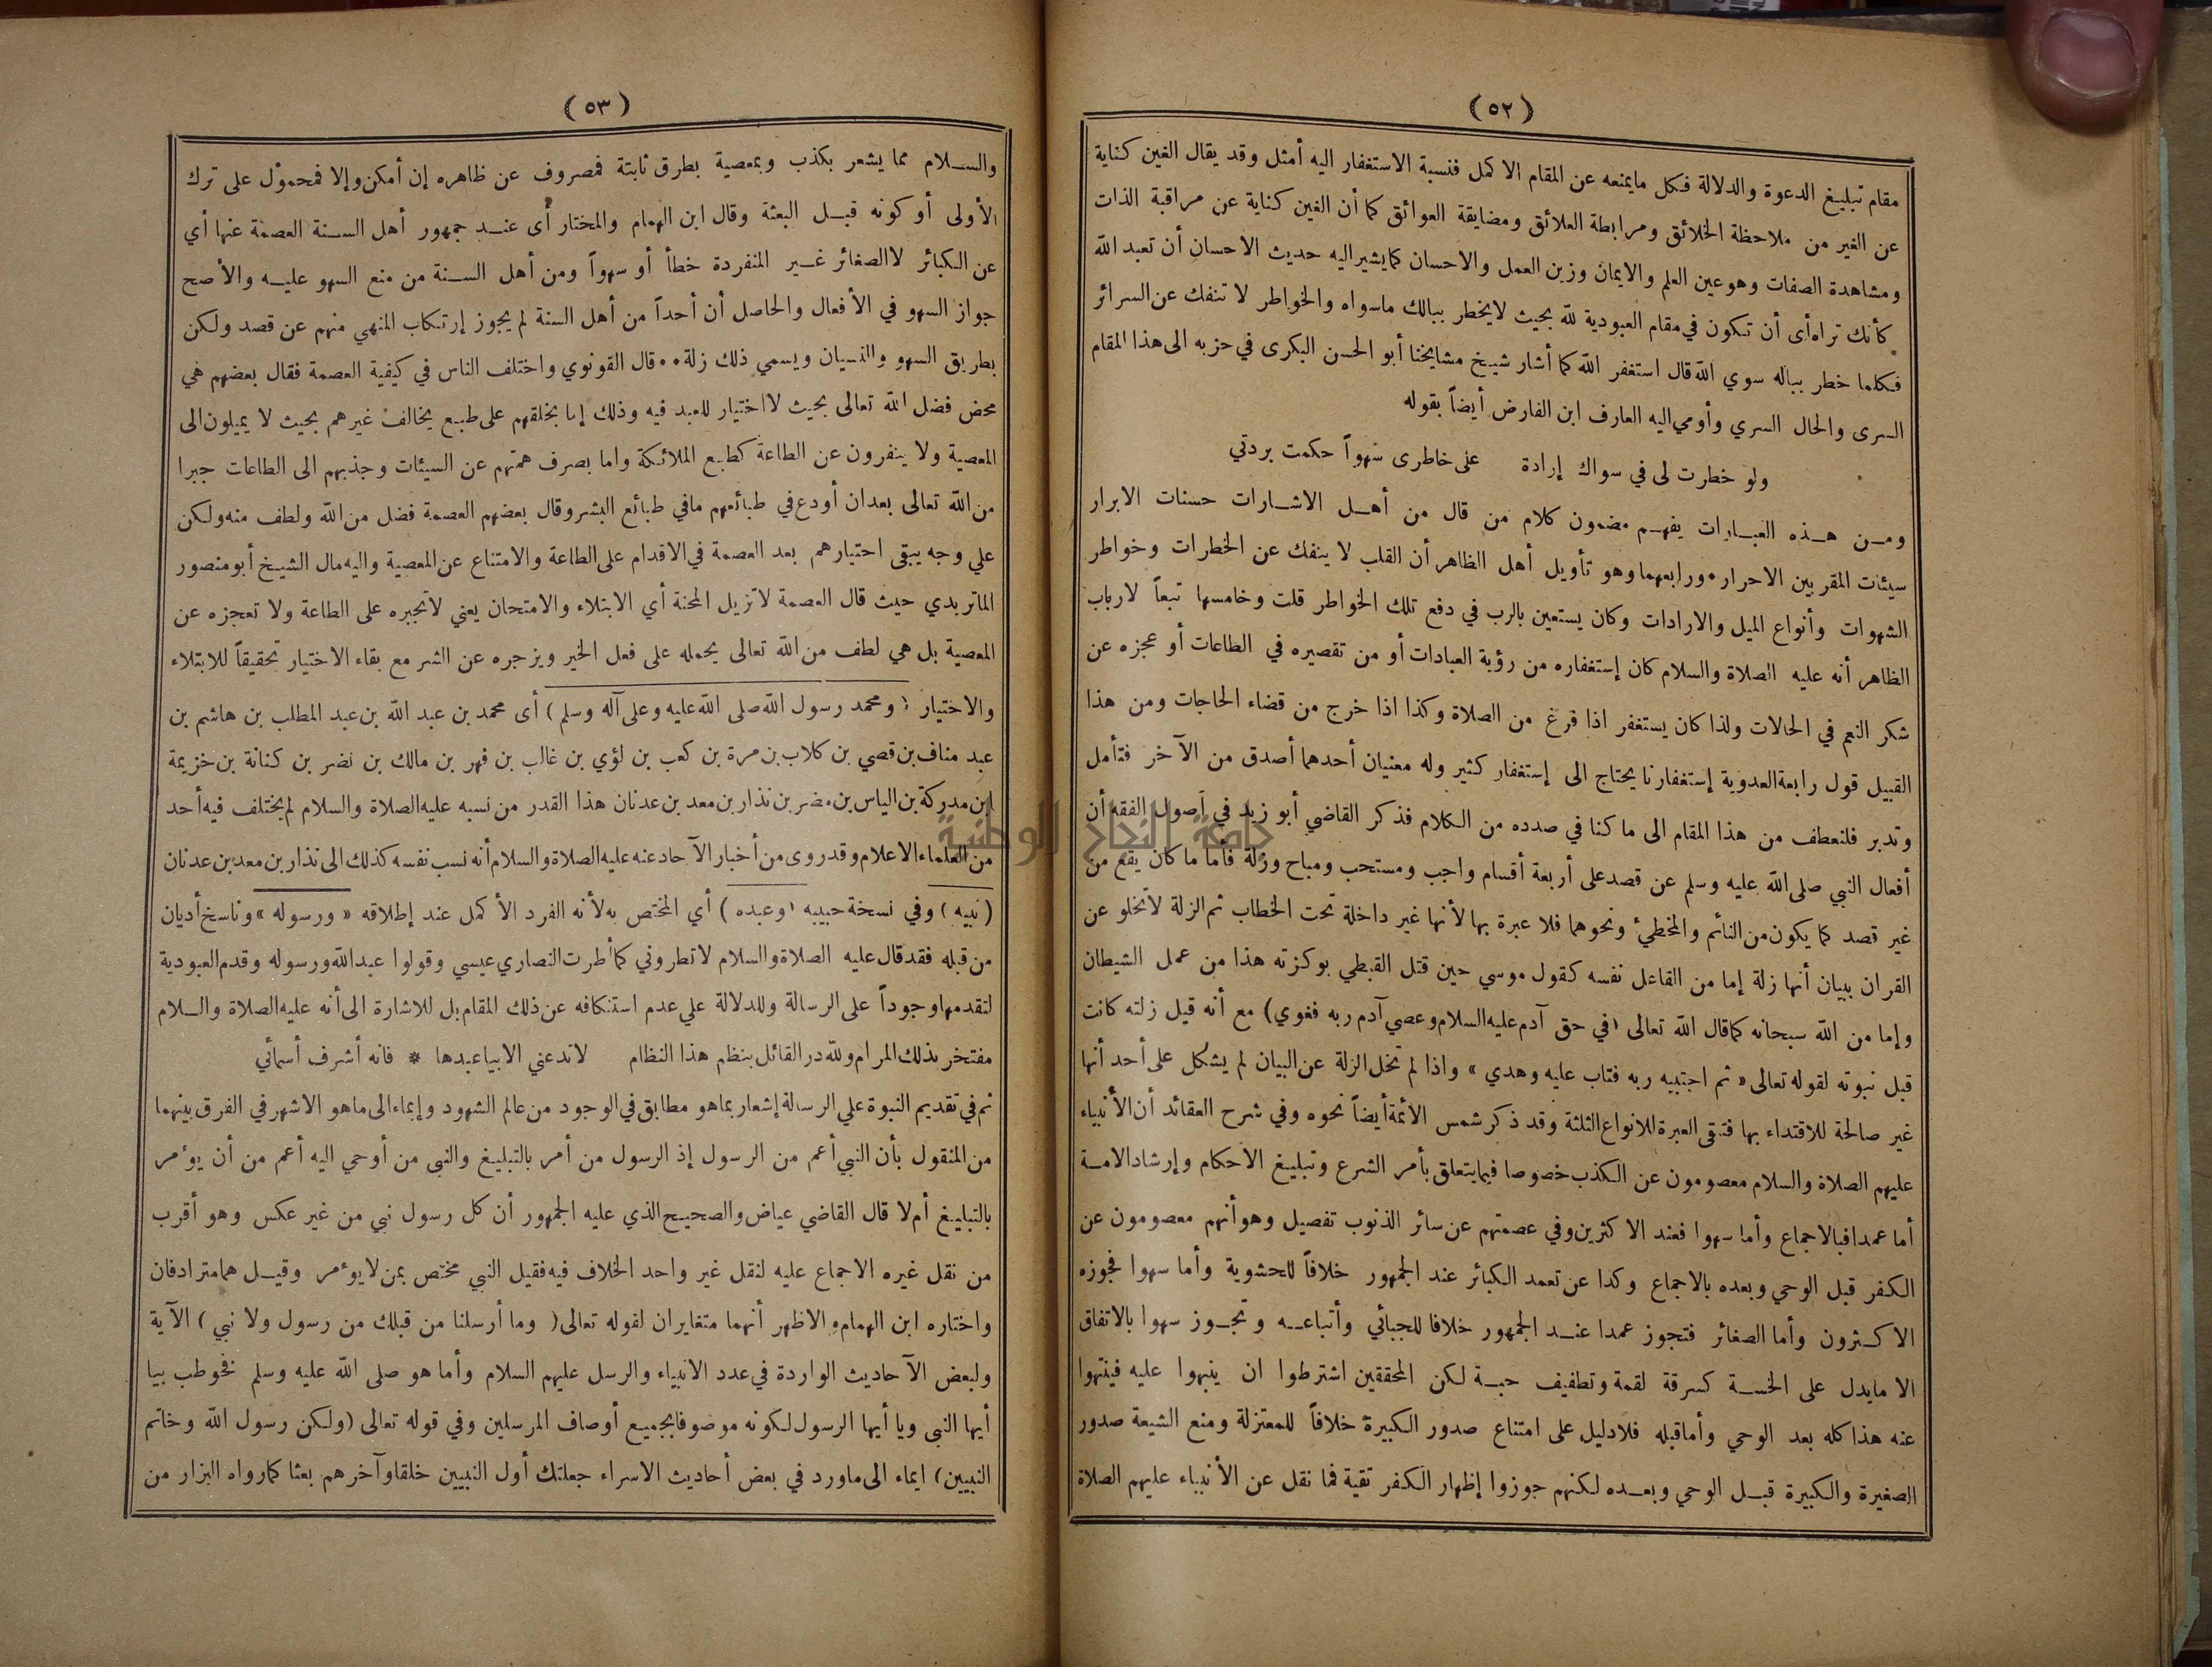 (٥٢)
مقام تبليغ الدعوة والدلالة فكل مايمنعه عن المقام الاكمل فنسبة الاستغفار اليه أمثل وقد يقال الغين كناية
عن الغير من ملاحظة الخلائق ومرابطة العلائق ومضايقة العوائق كما أن الغين كناية عن مراقبة الذات
ومشاهدة الصفات وهوعين العلم والايمان وزين العمل والاحسان كمايشيراليه حديث الاحسان أن تعبد الله
كأنك تراه أى أن تكون في مقام العبودية لله بحيث لايخطر ببالك ماسواه والخواطر لا تنفك عن السرائر
فكلما خطر بباله سوي الله قال استغفر الله كما أشار شيخ مشايخنا أبو الحسن البكرى في حزبه الى هذا المقام
السرى والحال السري وأومي اليه العارف ابن الفارض أيضاً بقوله
ولو خطرت لى في سواك إرادة على خاطرى سهواً حكمت بردتي
ومن هذه العبارات يفهم مضمون كلام من قال من أهل الاشارات حسنات الابرار
سيئات المقربين الاحرار • ورابعهما وهو تأويل أهل الظاهر أن القلب لا ينفك عن الخطرات وخواطر
الشهوات وأنواع الميل والارادات وكان يستعين بالرب في دفع تلك الخواطر قلت وخامسها تبعاً لارباب
الظاهر أنه عليه الصلاة والسلام كان إستغفاره من رؤية العبادات أو من تقصيره في الطاعات أو عجزه عن
شكر النعم في الحالات ولذا كان يستغفر اذا فرغ من الصلاة وكذا اذا خرج من قضاء الحاجات ومن هذا
القبيل قول رابعة العدوية إستغفارنا يحتاج الى إستغفار كثير وله معنيان أحدهما أصدق من الآخر فتأمل
وتدبر فلنعطف من هذا المقام الى ما كنا في صدده من الكلام فذكر القاضي أبو زيد في أصول الفقه أن
أفعال النبي صلى الله عليه وسلم عن قصد على أربعة أقسام واجب ومستحب ومباح وزلة فأما ما كان يقع من
غير قصد كما يكون من النائم والمخطئ ونحوهما فلا عبرة بها لأنها غير داخلة تحت الخطاب ثم الزلة لاتخلو عن
القران ببيان أنها زلة إما من الفاعل نفسه كقول موسي حين قتل القبطي بوكزته هذا من عمل الشيطان
وإما من الله سبحانه كماقال الله تعالى (في حق آدم عليه السلام وعصي آدم ربه فغوي) مع أنه قيل زلته كانت
قبل نبوته لقوله تعالى « ثم اجتبيه ربه فتاب عليه وهدي » واذا لم تخل الزلة عن البيان لم يشكل على أحد أنها
غير صالحة للاقتداء بها فتبقى العبرة للانواع الثلثة وقد ذكر شمس الأئمة أيضاً نحوه وفي شرح العقائد أن الأنبياء
عليهم الصلاة والسلام معصومون عن الكذب خصوصا فيمايتعلق بأمر الشرع وتبليغ الاحكام وإرشاد الامة
أما عمدا فبالاجماع وأما سهوا فعند الاكثرين وفي عصمتهم عن سائر الذنوب تفصيل وهو أنهم معصومون عن
الكفر قبل الوحي وبعده بالاجماع وكذا عن تعمد الكبائر عند الجمهور خلافاً للحشوية وأما سهوا فجوزه
الاكثرون وأما الصغائر فتجوز عمدا عند الجمهور خلافا للجبائي وأتباعه وتجوز سهوا بالاتفاق
الا مايدل على الخسة كسرقة لقمة وتطفيف حبة لكن المحققين اشترطوا ان ينبهوا عليه فينتهوا
عنه هذا كله بعد الوحي وأماقبله فلادليل على امتناع صدور الكبيرة خلافاً للمعتزلة ومنع الشيعة صدور
الصغيرة والكبيرة قبل الوحي وبعده لكنهم جوزوا إظهار الكفر تقية فما نقل عن الأنبياء عليهم الصلاة
(٥٣)
والسلام مما يشعر بكذب وبمعصية بطرق ثابتة فمصروف عن ظاهره إن أمكن وإلا فمحمول على ترك
الأولى أو كونه قبل البعثة وقال ابن الهمام والمختار أى عند جمهور أهل السنة العصمة عنها أي
عن الكبائر لا الصغائر غير المنفردة خطأ أو سهواً ومن أهل السنة من منع السهو عليه والأصح
جواز السهو في الأفعال والحاصل أن أحداً من أهل السنة لم يجوز إرتكاب المنهي منهم عن قصد ولكن
بطريق السهو والنسيان ويسمي ذلك زلة • • قال القونوي واختلف الناس في كيفية العصمة فقال بعضهم هي
محض فضل الله تعالى بحيث لا اختيار للعبد فيه وذلك إما بخلقهم على طبع يخالف غيرهم بحيث لا يميلون الى
المعصية ولا ينفرون عن الطاعة كطبع الملائكة واما بصرف همتهم عن السيئات وجذبهم الى الطاعات جبرا
من الله تعالى بعد ان أودع في طبائعهم مافي طبائع البشر وقال بعضهم العصمة فضل من الله ولطف منه ولكن
علي وجه يبقى اختيارهم بعد العصمة في الاقدام على الطاعة والامتناع عن المعصية واليه مال الشيخ أبو منصور
الماتريدي حيث قال العصمة لاتزيل المحنة أي الابتلاء والامتحان يعني لاتجبره على الطاعة ولا تعجزه عن
المعصية بل هي لطف من الله تعالى يحمله على فعل الخير ويزجره عن الشر مع بقاء الاختيار تحقيقاً للابتلاء
والاختيار (ومحمد رسول الله صلى الله عليه وعلى آله وسلم) أى محمد بن عبد الله بن عبد المطلب بن هاشم بن
عبد مناف بن قصي بن كلاب بن مرة بن كعب بن لؤي بن غالب بن فهر بن مالك بن نضر بن كنانة بن خزيمة
ابن مدركة بن الياس بن مضر بن نذار بن معد بن عدنان هذا القدر من نسبه عليه الصلاة والسلام لم يختلف فيه أحد
من العلماء الاعلام وقد روى من أخبار الآحاد عنه عليه الصلاة والسلام أنه نسب نفسه كذلك الى نذار بن معد بن عدنان
(نبيه) وفي نسخة حبيبه (وعبده) أي المختص به لأنه الفرد الأكمل عند إطلاقه « ورسوله » وناسخ أديان
من قبله فقد قال عليه الصلاة والسلام لاتطروني كما أطرت النصاري عيسي وقولوا عبد الله ورسوله وقدم العبودية
لتقدمها وجوداً على الرسالة وللدلالة علي عدم استنكافه عن ذلك المقام بل للاشارة الى أنه عليه الصلاة والسلام
مفتخر بذلك المرام ولله در القائل بنظم هذا النظام لاتدعني الا بياعبدها * فانه أشرف أسمائي
ثم في تقديم النبوة علي الرسالة إشعار بماهو مطابق في الوجود من عالم الشهود وإيماء الى ماهو الاشهر في الفرق بينهما
من المنقول بأن النبي أعم من الرسول إذ الرسول من أمر بالتبليغ والنبي من أوحي اليه أعم من أن يؤمر
بالتبليغ أم لا قال القاضي عياض والصحيح الذي عليه الجمهور أن كل رسول نبي من غير عكس وهو أقرب
من نقل غيره الاجماع عليه لنقل غير واحد الخلاف فيه فقيل النبي مختص بمن لايؤمر وقيل هما مترادفان
واختاره ابن الهمام والاظهر أنهما متغايران لقوله تعالى (وما أرسلنا من قبلك من رسول ولا نبي) الآية
ولبعض الآحاديث الواردة في عدد الانبياء والرسل عليهم السلام وأما هو صلى الله عليه وسلم فخوطب بيا
أيها النبي ويا أيها الرسول لكونه موصوفا بجميع أوصاف المرسلين وفي قوله تعالى (ولكن رسول الله وخاتم
النبيين) ايماء الى ماورد في بعض أحاديث الاسراء جعلتك أول النبيين خلقا وآخرهم بعثا كمارواه البزار من
جامعة النجاح الوطنية